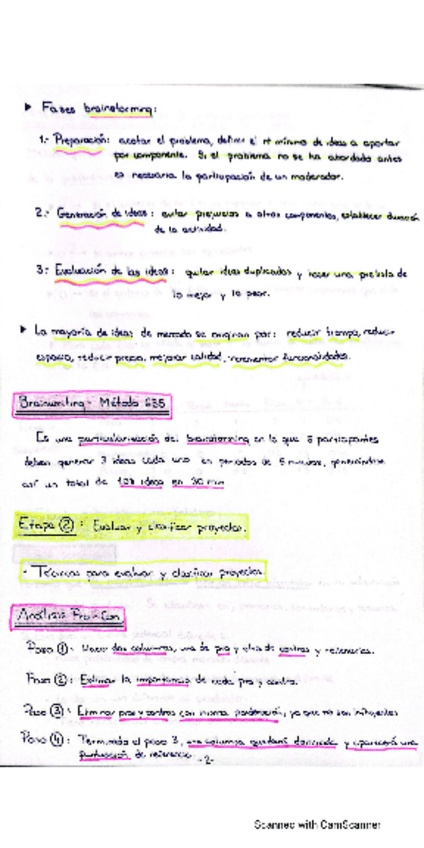 ▸ Fases brainstorming:
1.- Preparación: acotar el problema, definir el nº mínimo de ideas a aportar
por componente. Si el problema no se ha abordado antes
es necesaria la participación de un moderador.
2.- Generación de ideas: evitar prejuicios a otros componentes, establecer duración
de la actividad.
3.- Evaluación de las ideas: quitar ideas duplicadas y hacer una prelista de
lo mejor y lo peor.
▸ La mayoría de ideas de mercado se originan por: reducir tiempo, reducir
espacio, reducir precio, mejorar calidad, incrementar funcionalidades.
Brainwriting - Método 635
Es una particularización del brainstorming en la que 6 participantes
deben generar 3 ideas cada uno en periodos de 5 minutos, generándose
así un total de 108 ideas en 30 min
Etapa ②: Evaluar y clasificar proyectos.
- Técnicas para evaluar y clasificar proyectos
Análisis Pros-Con
Paso ①: Hacer dos columnas, una de pros y otra de contras y rellenarlas.
Paso ②: Estimar la importancia de cada pro y contra.
Paso ③: Eliminar pros y contras con misma ponderación, ya que no son influyentes
Paso ④: Terminado el paso 3, una columna quedará dominada y aparecerá una
puntuación de referencia
-2-
Scanned with CamScanner